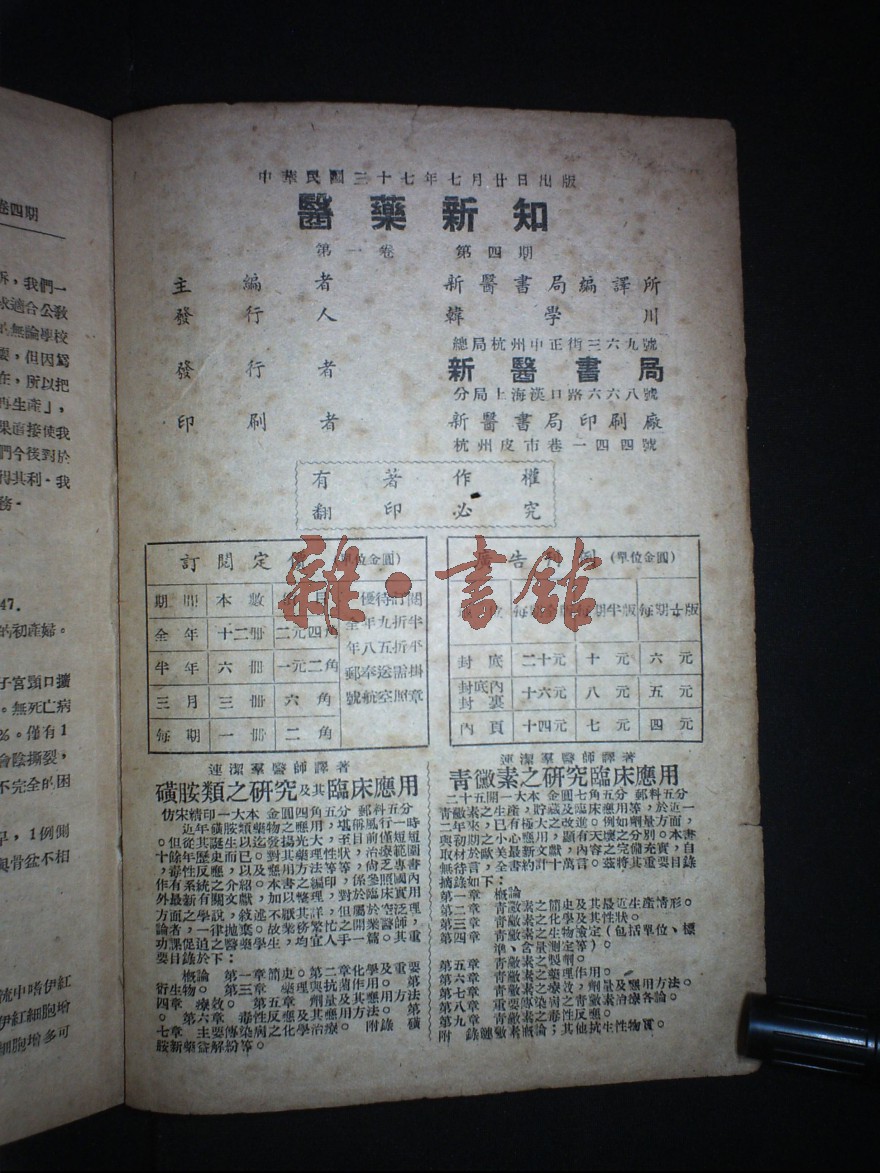 卷四期
訴，我們一
求適合公敎
的無論學校
要，但因爲
在，所以把
再生產」，
果這接使我
們今後對於
得其利。我
務。
47.
的初產婦。
子宮頸口擴
。無死亡病
%。僅有1
會陰撕裂，
不完全的困
早，1例側
與骨盆不相
流中嗜伊紅
伊紅細胞增
細胞增多可
中華民國三十七年七月廿日出版
醫藥新知
第一卷 第四期
主編者 新醫書局編譯所
發行人 韓學川
總局杭州中正街三六九號
發行者 新醫書局
分局上海漢口路六六八號
印刷者 新醫書局印刷廠
杭州皮市巷一四四號
有著作權
翻印必究
訂閱定價 (單位金圓)
期間 本數
全年 十二冊 二元四角
半年 六冊 一元二角
三月 三冊 六角
每期 一冊 二角
優待訂閱
全年九折半
年八五折平
郵奉送需掛
號航空照章
廣告 例 (單位金圓)
位 每期全版 每期半版 每期¼版
封底 二十元 十元 六元
封底內 封裏 十六元 八元 五元
內頁 十四元 七元 四元
連潔羣醫師譯著
磺胺類之硏究及其臨床應用
仿宋精印一大本 金圓四角五分 郵料五分
近年磺胺類藥物之應用，堪稱風行一時
。但從其誕生以迄發揚光大，至目前僅短短
十餘年歷史而已。對其藥理性狀，治療範圍
，毒性反應，以及應用方法等等，尙乏專書
作有系統之介紹。本書之編印，係參照國內
外最新有關文獻，加以整理，對於臨床實用
方面之學說，敍述不厭其詳，但屬於空泛理
論者，一律拋棄。故業務繁忙之開業醫師，
功課促迫之醫藥學生，均宜人手一篇。其重
要目錄於下：
概論 第一章簡史。第二章化學及重要
衍生物。 第三章 藥理與抗菌作用。 第
四章 療效。 第五章 劑量及其應用方法
。 第六章 毒性反應及其應用方法。 第
七章 主要傳染病之化學治療。 附錄 磺
胺新藥益解紛等。
連潔羣醫師譯著
青黴素之硏究臨床應用
二十五開一大本 金圓七角五分 郵料五分
青黴素之生產，貯藏及臨床應用等，於近一
二年來，已有極大之改進。例如劑量方面，
與初期之小心應用，顯有天壤之分別。本書
取材於歐美最新文獻，內容之完備充實，自
無待言，全書約計十萬言。茲將其重要目錄
摘錄如下：
第一章 概論
第二章 靑黴素之簡史及其最近生產情形。
第三章 靑黴素之化學及其性狀。
第四章 靑黴素之生物檢定（包括單位、標
準、含量測定等）。
第五章 靑黴素之製劑。
第六章 靑黴素之藥理作用。
第七章 靑黴素之療效，劑量及應用方法。
第八章 重要傳染病之靑黴素治療各論。
第九章 靑黴素之毒性反應。
附 錄 鏈黴素概論；其他抗生性物質。
雜·書館